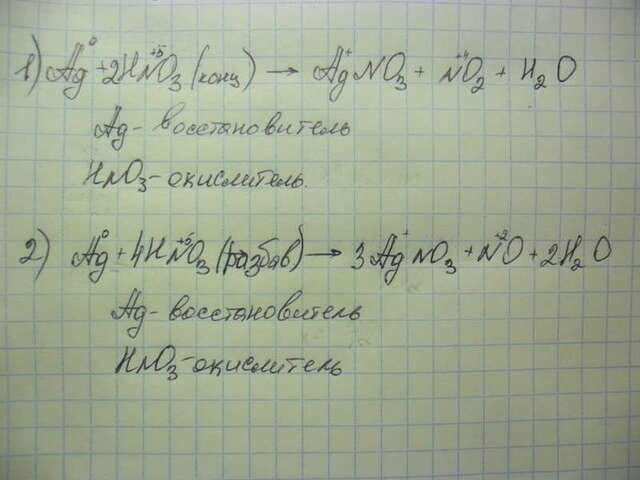 1) Ag⁰ + 2HN⁺⁵O₃ (конц) → Ag⁺NO₃ + N⁺⁴O₂ + H₂O
Ag - восстановитель
HNO₃ - окислитель.
2) Ag⁰ + 4HN⁺⁵O₃ (разбав) → 3Ag⁺NO₃ + N⁺²O + 2H₂O
Ag - восстановитель
HNO₃ - окислитель